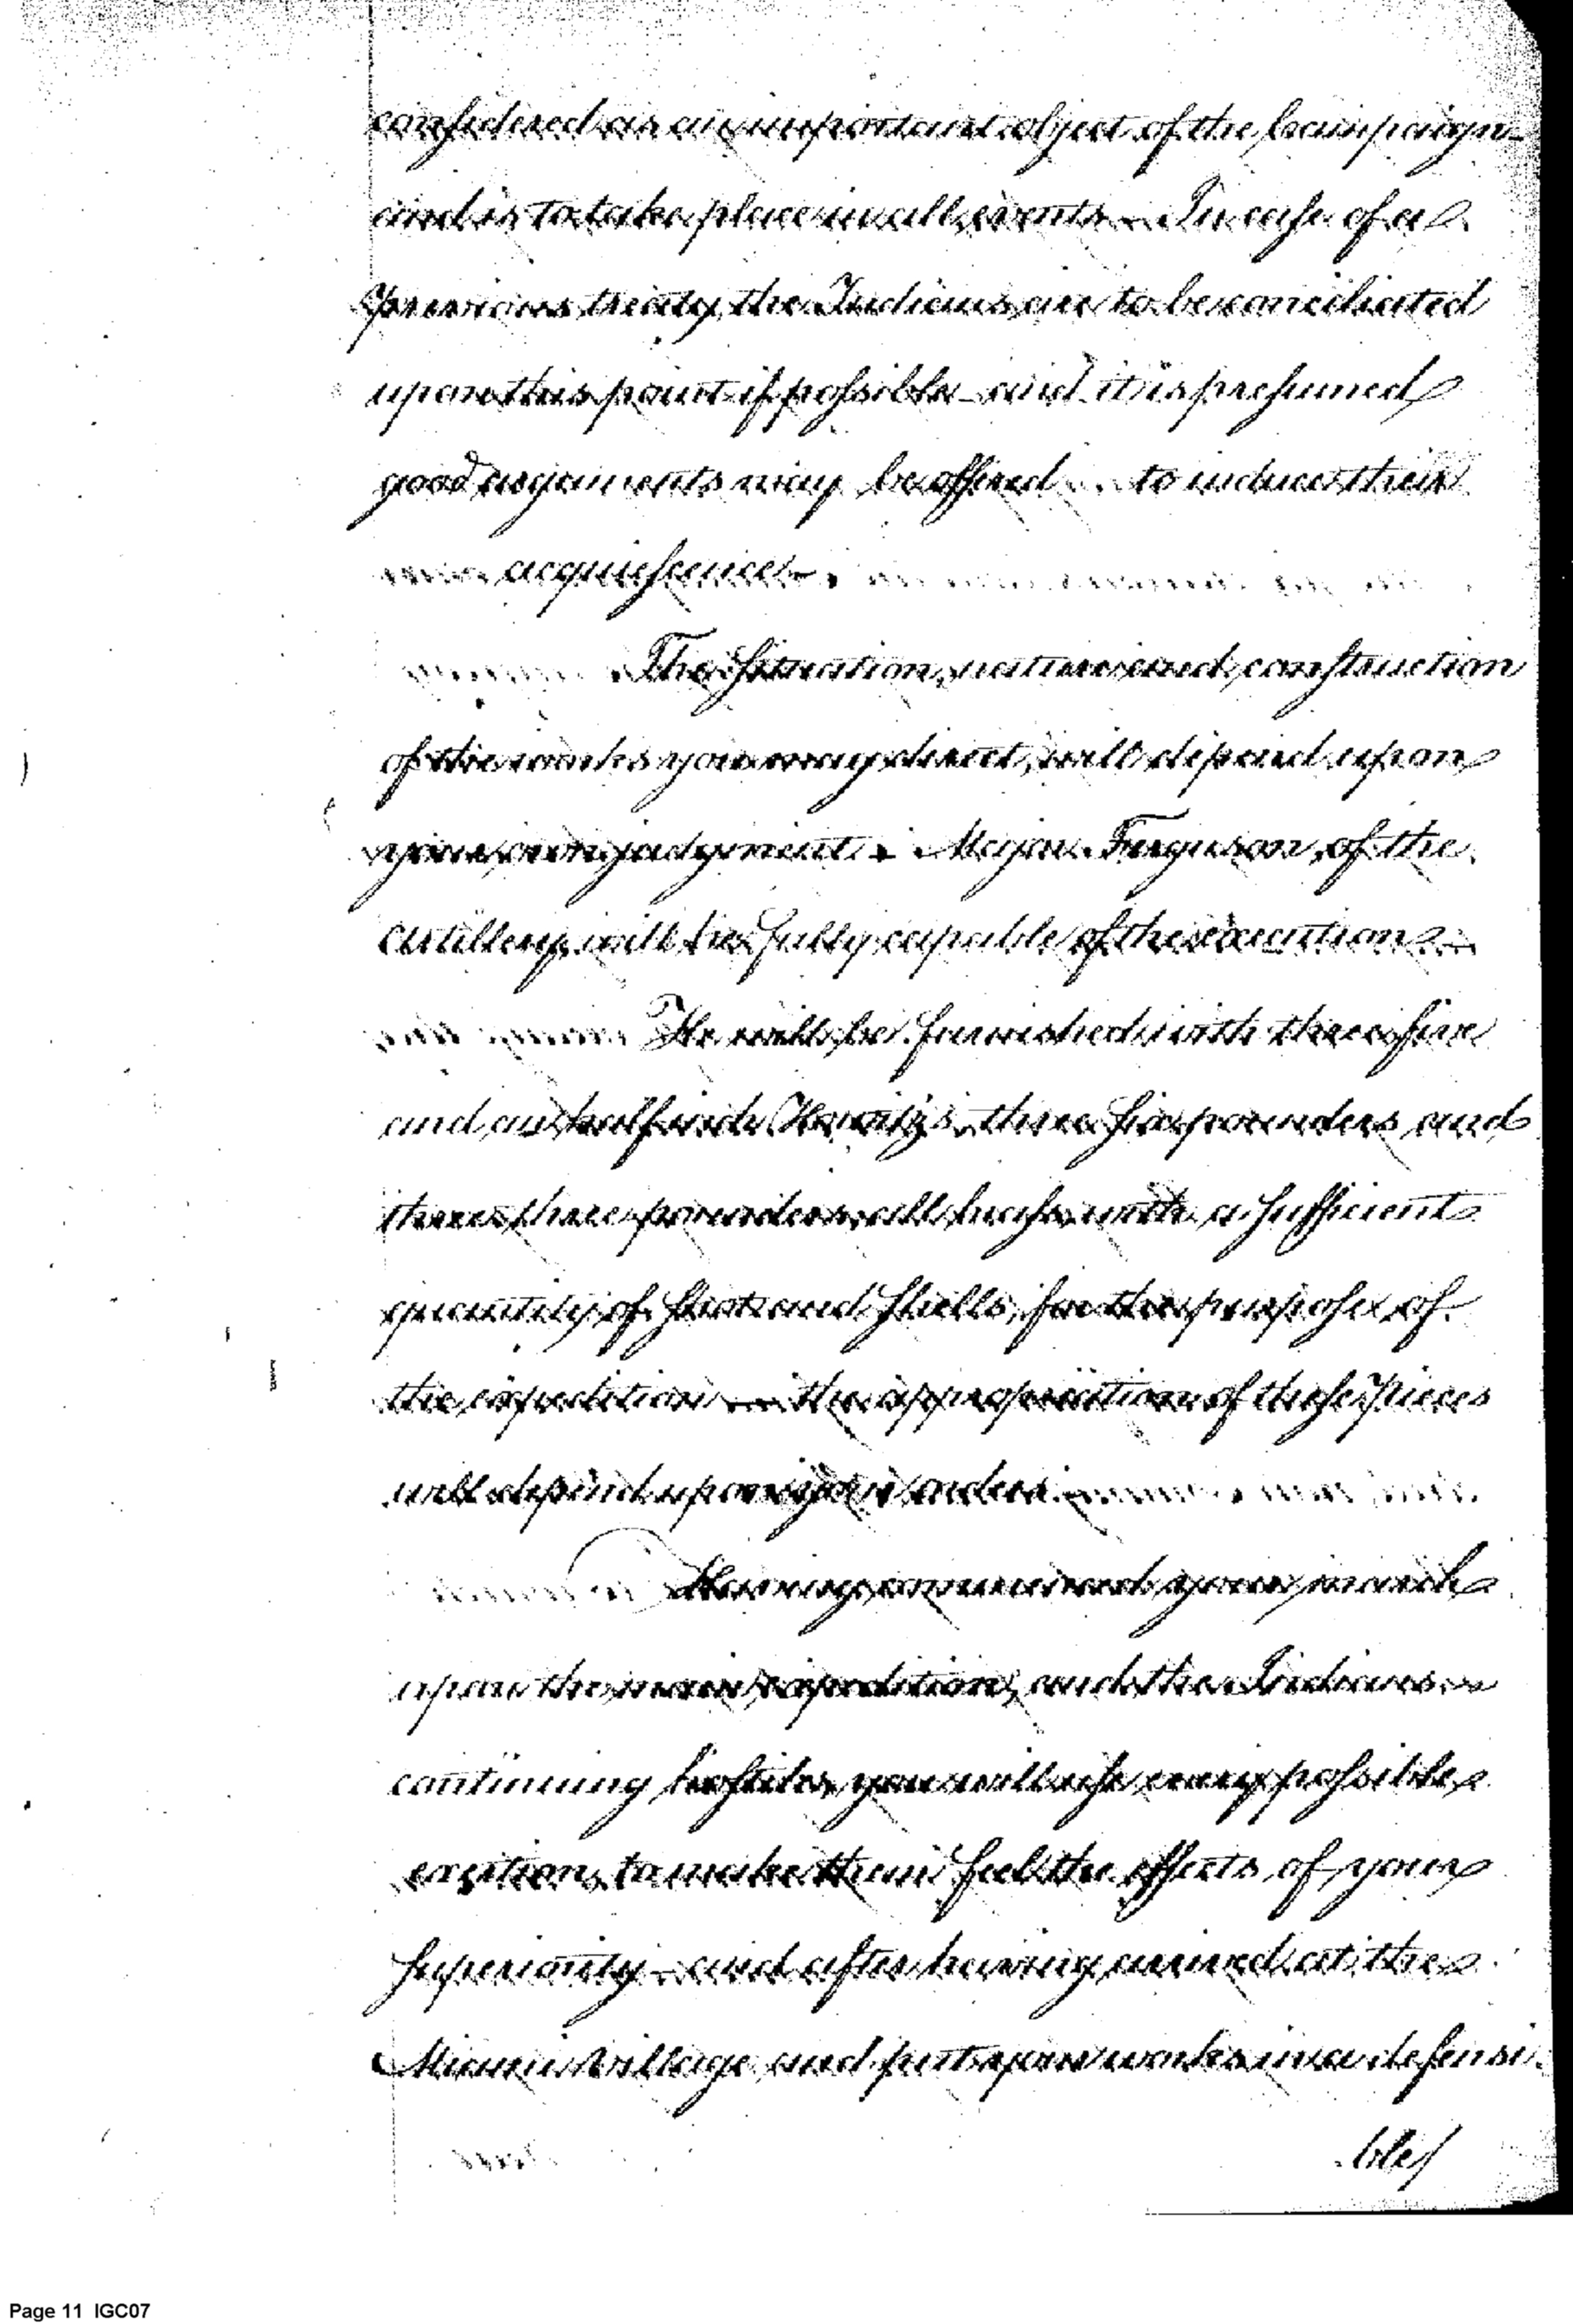 considered as an important object of the Campaign
and is to take place in all events — In case of a
previous treaty, the Indians are to be conciliated
upon this point if possible — and it is presumed
good arguments may be offered to induce their
acquiescence —
The Situation, nature and construction
of the works you may direct, will depend upon
your own judgment. Major Ferguson, of the
artillery will be fully capable of the execution —
He will be furnished with three five
and an half inch Howitz's, three six pounders and
three three pounders all brass with a sufficient
quantity of shot and shells, for the purpose of
the expedition — the appropriation of these pieces
will depend upon your orders —
Having commenced your march
upon the main expedition, and the Indians
continuing hostile, you will use every possible
exertion, to make them feel the effects of your
superiority — and after having arrived at the
Miami Village and put your works in a defensi
ble/
Page 11 IGC07